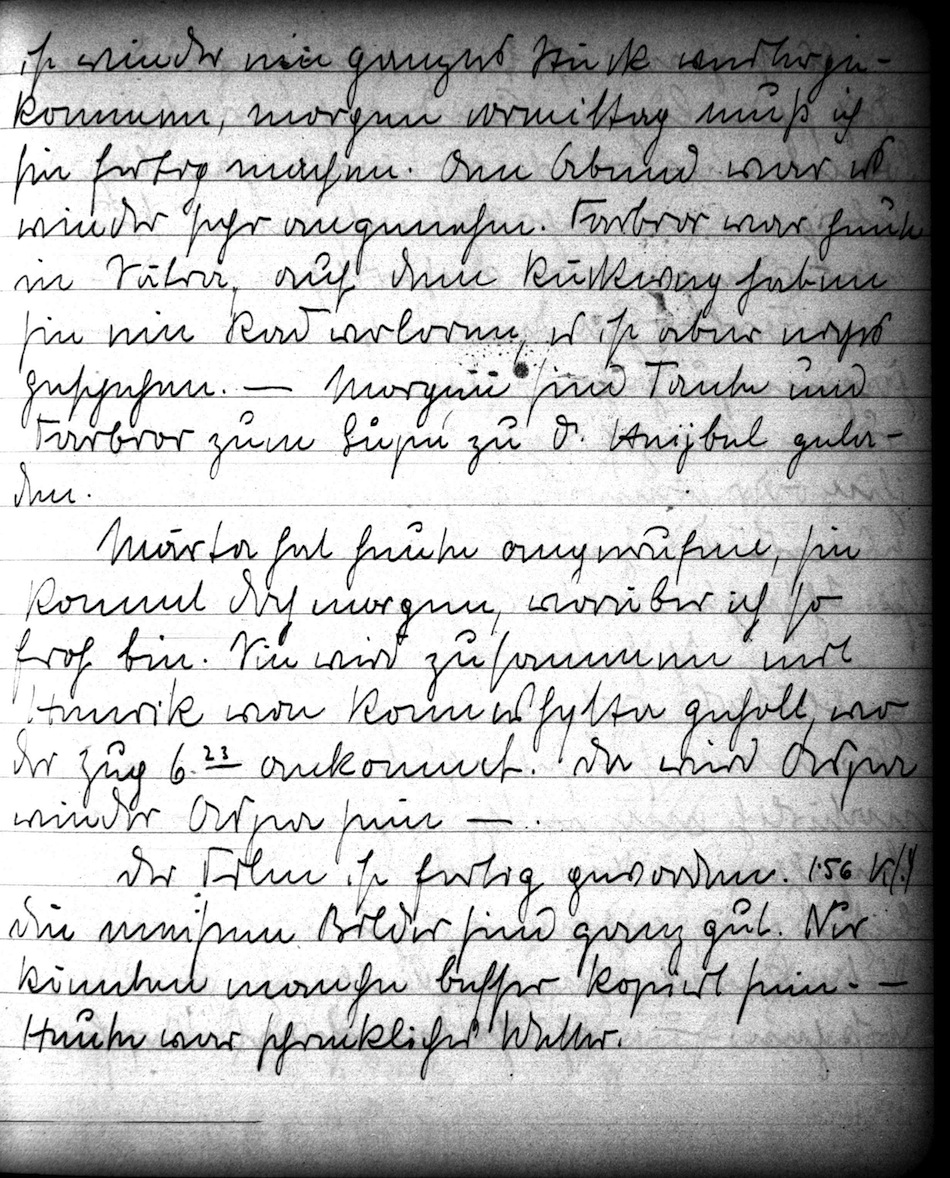 ist wieder ein ganzes Stück weiterge-
kommen, morgen vormittag muß ich
sie fertig machen. Am Abend war es
wieder sehr angenehm. Farbror war heute
in Sätra, auf dem Rückweg haben
sie ein Rad verloren, es ist aber nichts
geschehen. — Morgen sind Tante und
Farbror zum Supé zu D. gela-
den.
Märta hat heute angerufen, sie
kommt doch morgen, worüber ich so
froh bin. Sie wird zusammen mit
Henrik von geholt, wo
der Zug 6.23 ankommt. Da wird
wieder sein — .
Der Film ist fertig geworden. 1.56 K(!)
die meisten Bilder sind ganz gut. Nur
könnten manche besser kopiert sein. —
Heute war schreckliches Wetter.